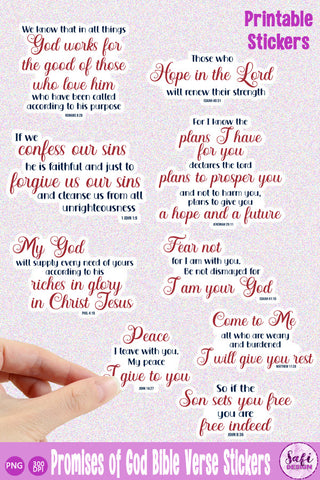 Printable
Stickers
We know that in all things
God works for
the good of those
who love him
who have been called
according to his purpose
ROMANS 8:28
Those who
Hope in the Lord
will renew their strength
ISAIAH 40:31
If we
confess our sins
he is faithful and just to
forgive us our sins
and cleanse us from all
unrighteousness
1 JOHN 1:9
For I know the
plans I have
for you
declares the lord
plans to prosper you
and not to harm you,
plans to give you
a hope and a future
JEREMIAH 29:11
My God
will supply every need of yours
according to his
riches in glory
in Christ Jesus
PHIL 4:19
Fear not
for I am with you.
Be not dismayed for
I am your God
ISAIAH 41:10
Peace
I leave with you.
My peace
I give to you
JOHN 14:27
Come to Me
all who are weary
and burdened
I will give you rest
MATTHEW 11:28
So if the
Son sets you free
you are
free indeed
JOHN 8:36
PNG
300
DPI
Promises of God Bible Verse Stickers
Safi
DESIGN